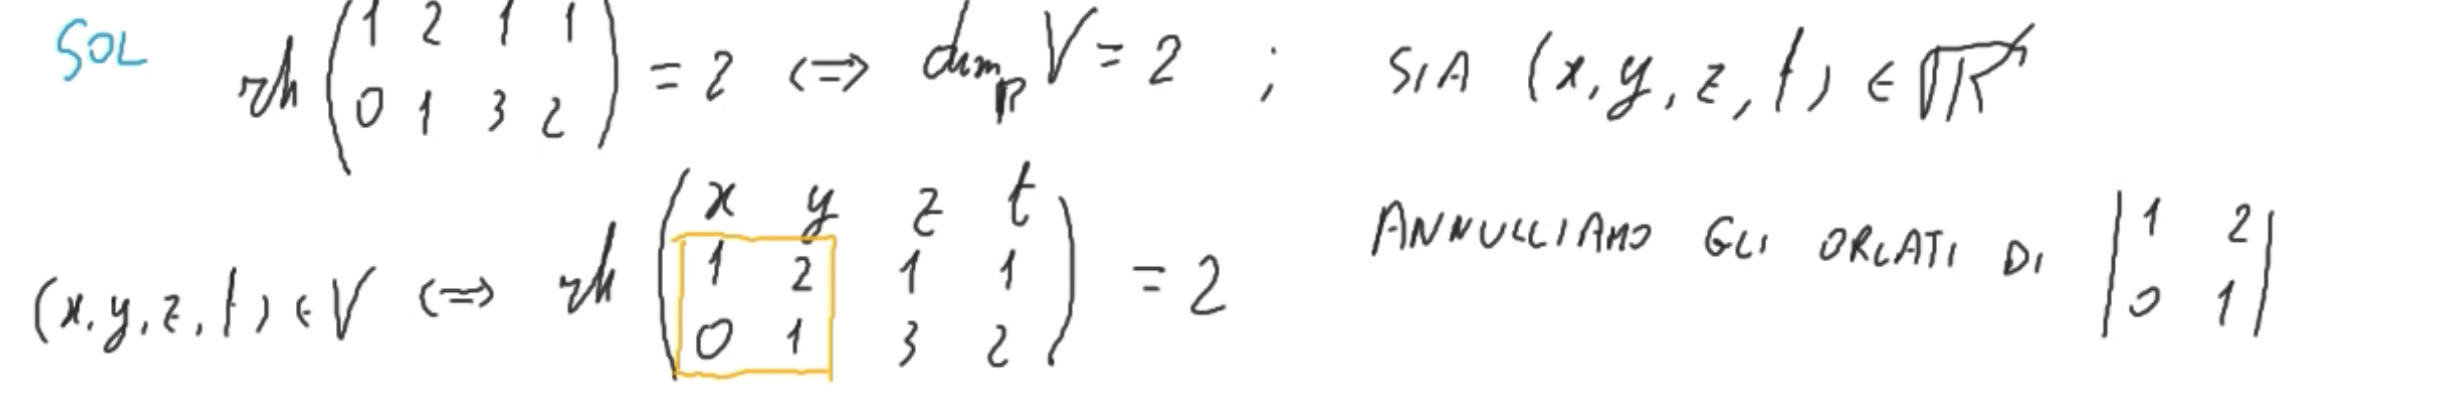 SOL rk (1 2 1 1 / 0 1 3 2) = 2 <=> dim_R V = 2 ; SIA (x, y, z, t) ∈ ℝ⁴
(x, y, z, t) ∈ V <=> rk (x y z t / 1 2 1 1 / 0 1 3 2) = 2 ANNULLIAMO GLI ORLATI DI |1 2 / 0 1|